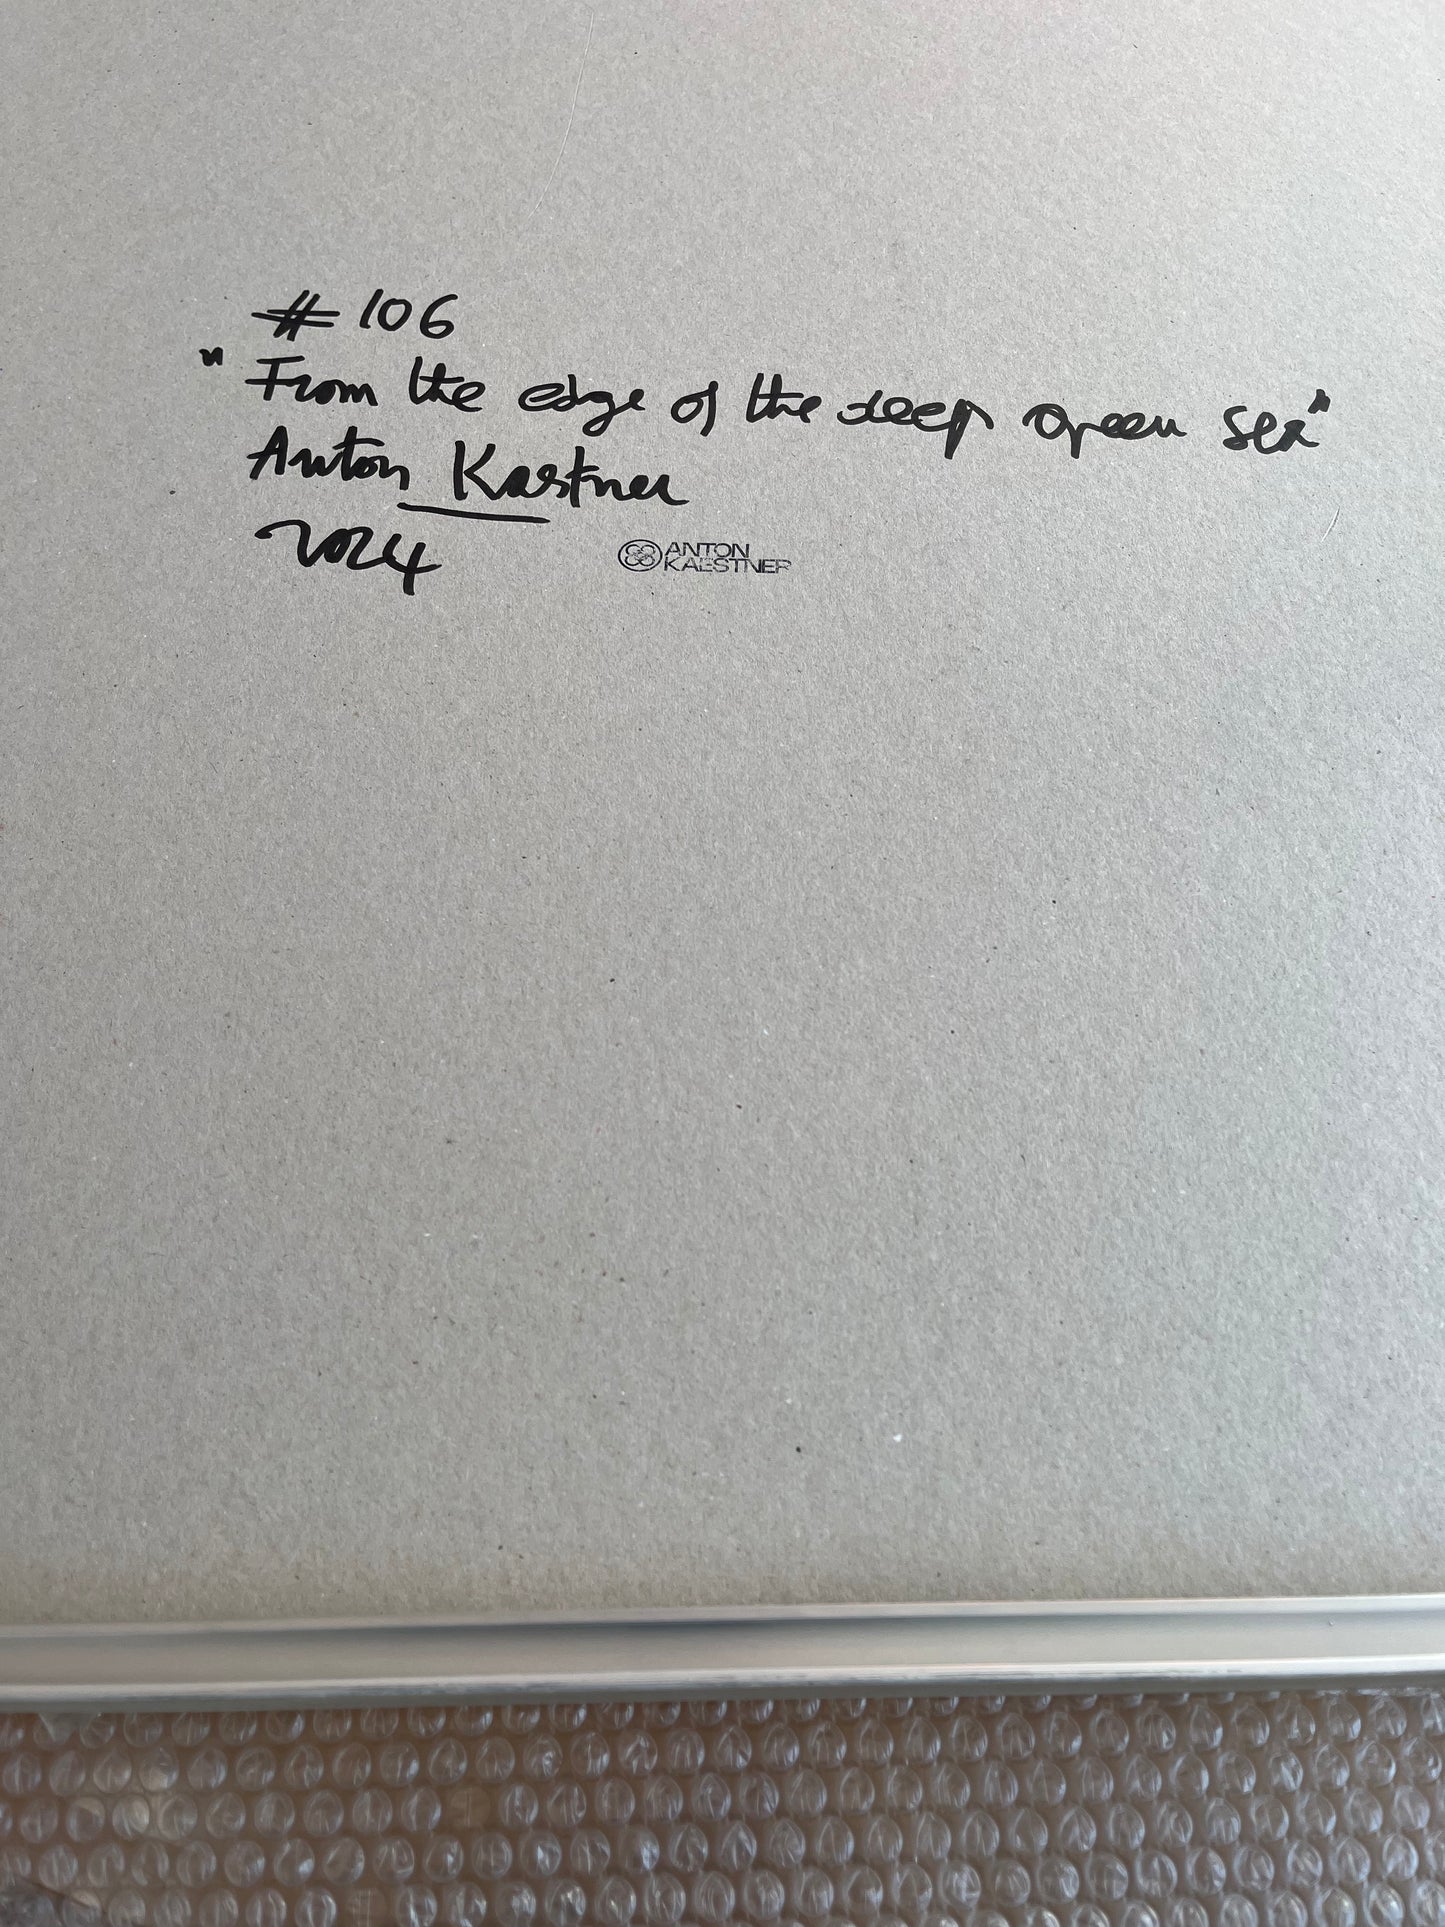 # 106
"From the edge of the deep green sea"
Anton Kaestner
2024
ANTON
KAESTNER